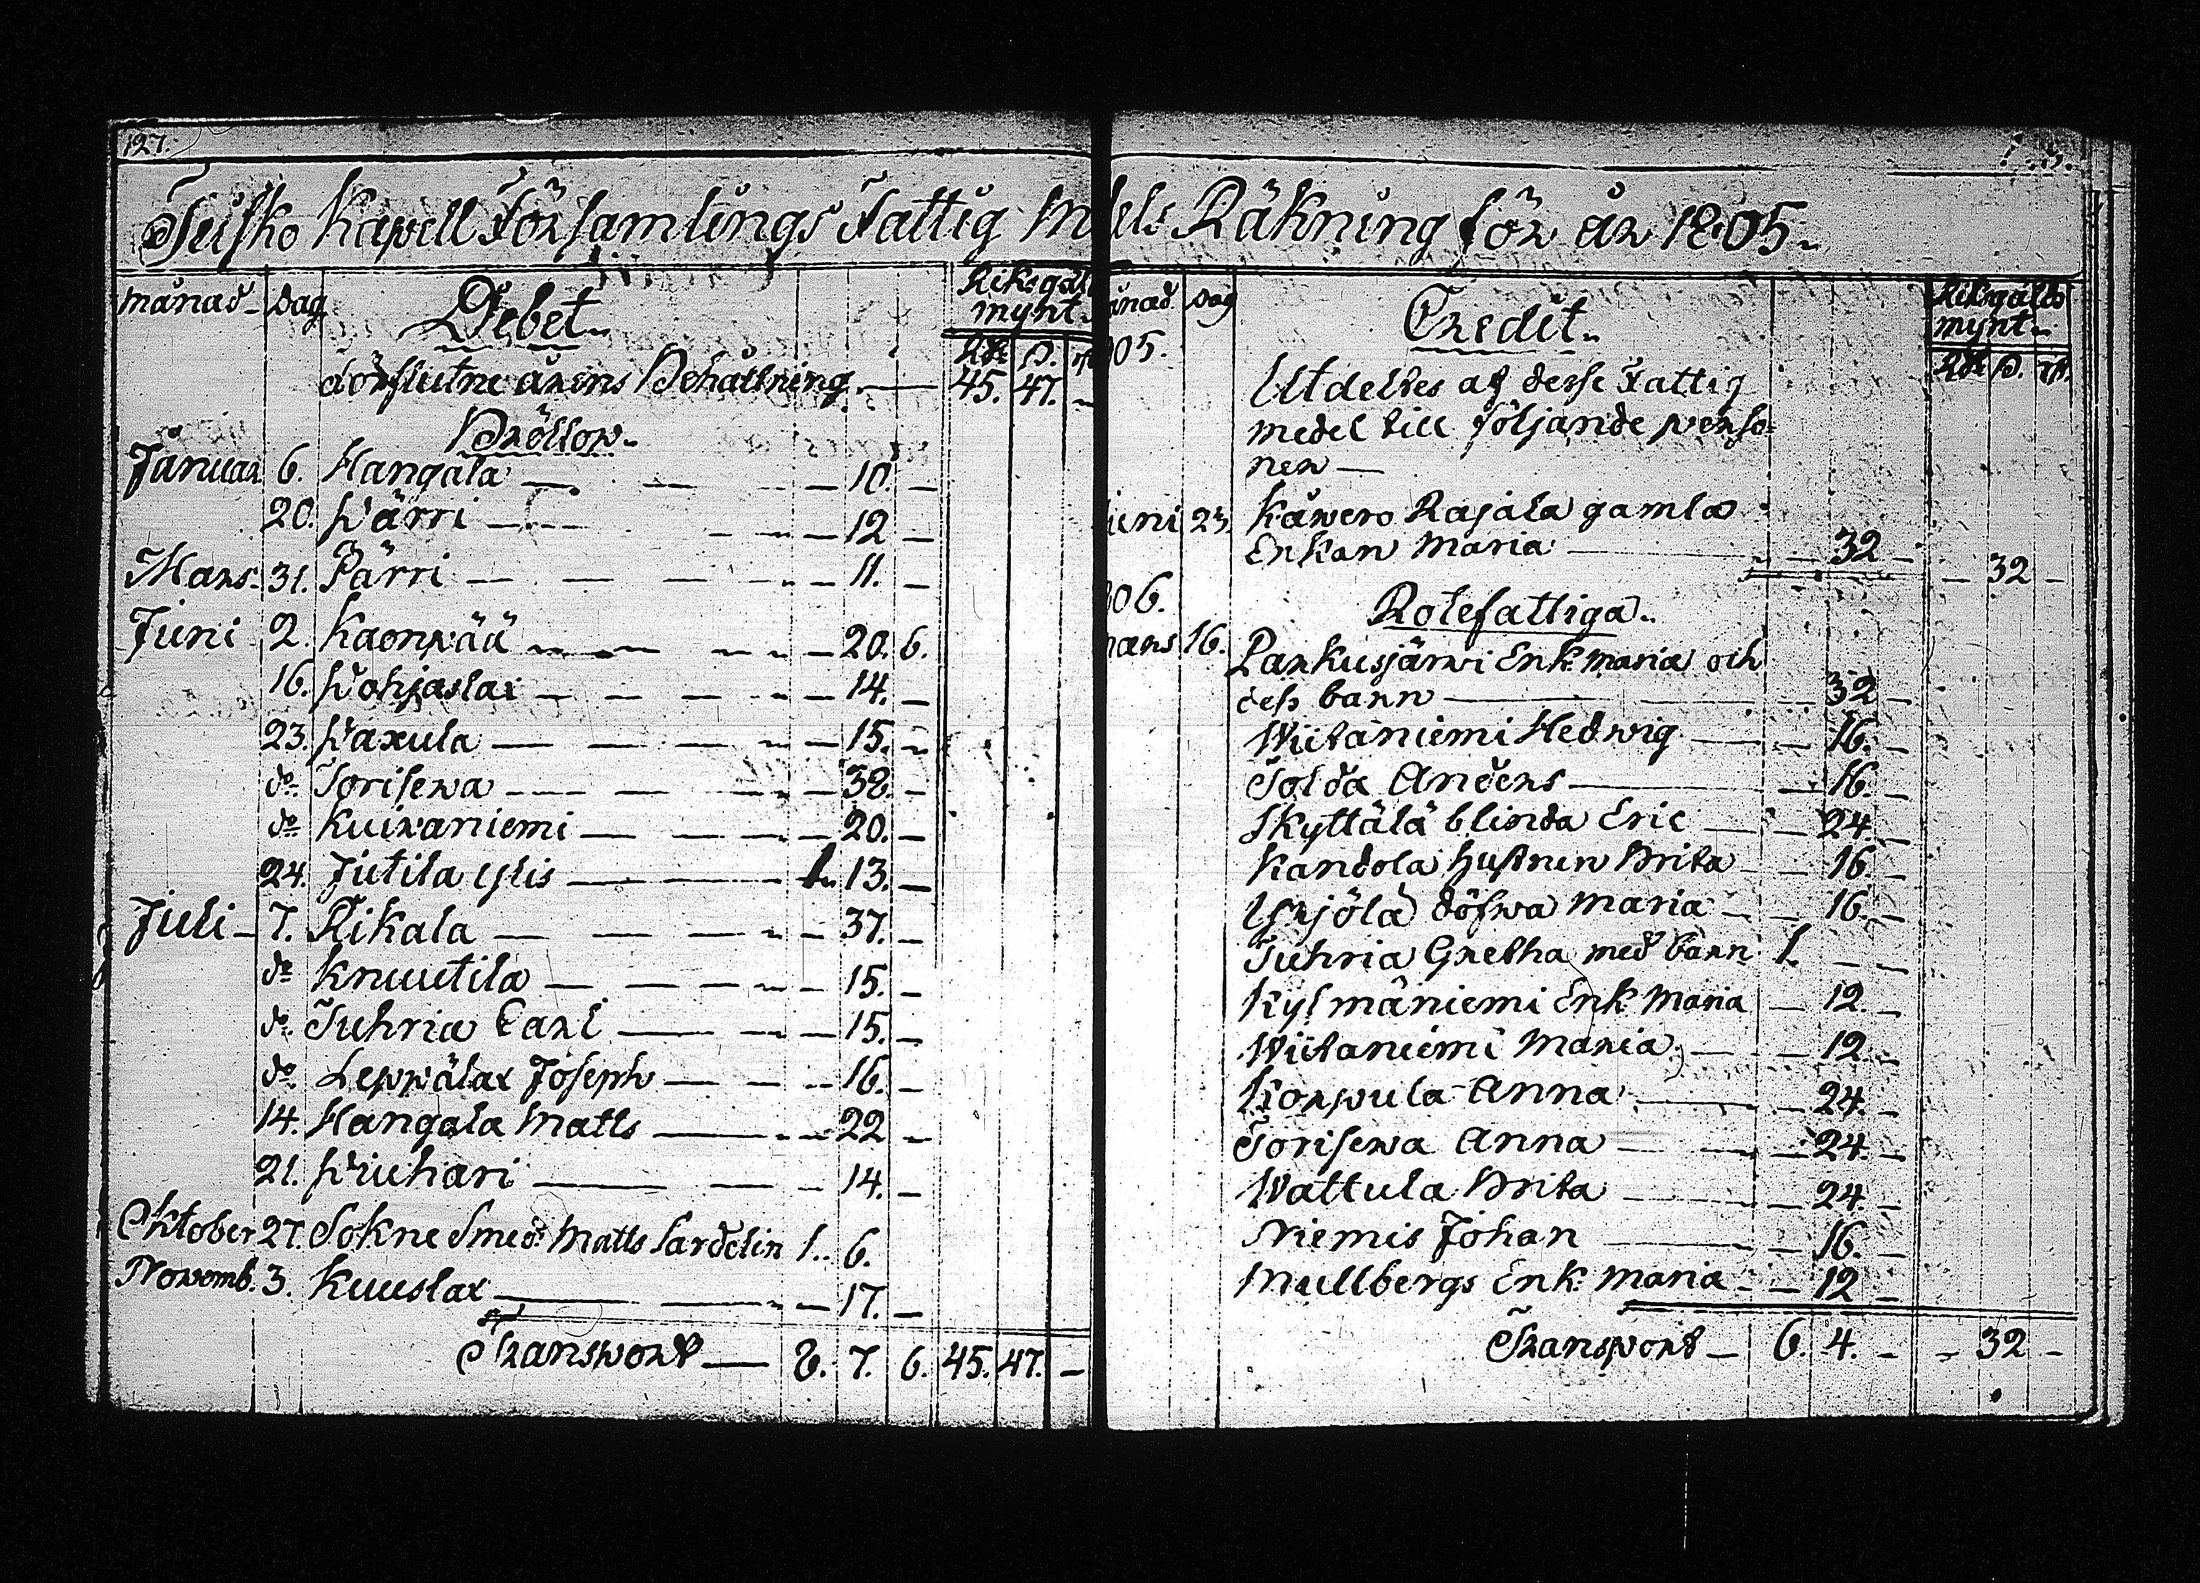 127.
Tulsko Kapell Församlings Fattig Medels Räkning för år 1805.
månad Dag Debet. Riksgälds mynt.
Rdr ß. rst
Förflutne årens Behållning — 45. 47. —
Bröllop.
Januar 6. Hangala — 10. —
20. Wärri — 12 —
Mars 31. Pärri — 11. —
Juni 2. Kaonpää — 20. 6.
16. Pohjaslax — 14. —
23. Warula — 15. —
do Torisewa — 32. —
do Kuiwaniemi — 20. —
24. Jutila Ylis — 1. 13. —
Juli 7. Rikala — 37. —
do Knuutila — 15. —
do Tuhria Carl — 15. —
do Leppälax Joseph — 16. —
14. Hangala Matts — 22 —
21. Wiuhari — 14. —
Oktober 27. Sokne Smed. Matts Sardelin 1. 6.
Novemb. 3. Kuuslax — 17. —
Transport — 8. 7. 6. 45. 47. —
månad Dag Credit. Riksgälds mynt.
1805. Rdr ß. rst.
Utdeltes af desse Fattig
medel till följande perso-
ner —
Juni 23. Käwero Rajala gamla
Enkan Maria — 32 — — 32 —
1806. Rotefattiga.
Mars 16. Parkusjärwi Enk. Maria och
dess barn — 32 —
Wiitaniemi Hedwig — 16. —
Tolda Anders — 16 —
Skyttälä blinda Eric — 24 —
Kandola hustrun Brita — 16 —
Yrjölä döfwa Maria — 16. —
Tuhria Gretha med barn 1. — —
Kylmäniemi Enk. Maria — 12. —
Wiitaniemi Maria — 12 —
Korpula Anna — 24. —
Torisewa Anna — 24. —
Wattula Brita — 24. —
Niemis Johan — 16. —
Mullbergs Enk. Maria — 12 —
Transport — 6. 4. — — 32 —